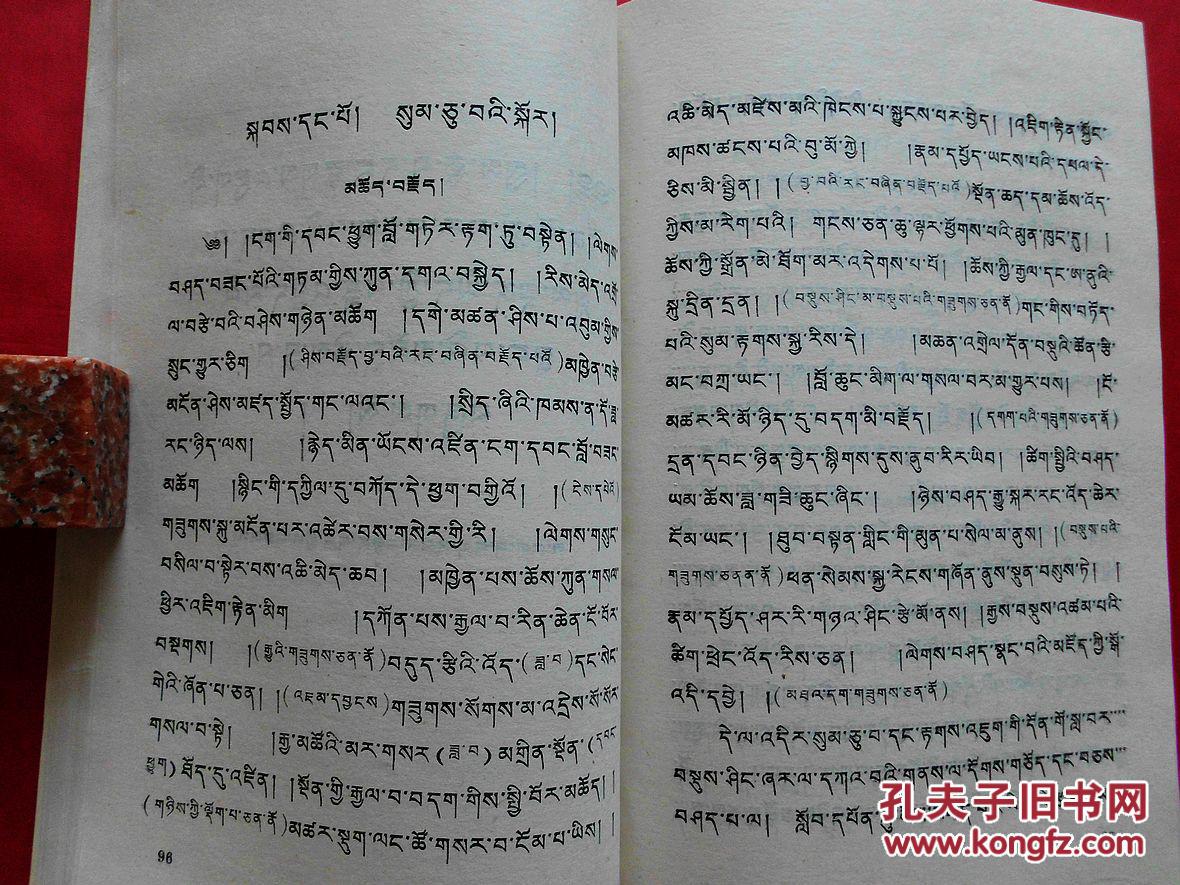 སྐབས་དང་པོ། སུམ་ཅུ་བའི་སྐོར།
མཆོད་བརྗོད།
༄༅། །ངག་གི་དབང་ཕྱུག་བློ་གཏེར་རྟག་ཏུ་བསྟེན། །ལེགས་
བཤད་བཟང་པོའི་གཏམ་གྱིས་ཀུན་དགའ་བསྐྱེད། །རིས་མེད་འགྲོ་
ལ་བརྩེ་བའི་བཤེས་གཉེན་མཆོག །དགེ་མཚན་ཤིས་པ་འབུམ་གྱིས་
སྲུང་གྱུར་ཅིག །(ཤིས་བརྗོད་བྱ་བའི་རང་བཞིན་བརྗོད་པའོ)མཁྱེན་བརྩེ་
མངོན་ཤེས་མཛད་སྤྱོད་གང་ལའང་། །སྲིད་ཞིའི་ཁམས་ན་དོ་ཟླ་
རང་ཉིད་ལས། །རྙེད་མིན་ཡོངས་འཛིན་ངག་དབང་བློ་བཟང་
མཆོག །སྙིང་གི་དཀྱིལ་དུ་བཀོད་དེ་ཕྱག་བགྱིའོ། །(ངེས་དཔེའོ)
གཟུགས་སྐུ་མངོན་པར་འཚེར་བས་གསེར་གྱི་རི། །ལེགས་གསུང་
བསིལ་བ་སྟེར་བས་འཆི་མེད་ཆབ། །མཁྱེན་པས་ཆོས་ཀུན་གསལ་
ཕྱིར་འཇིག་རྟེན་མིག །དཀོན་པས་རྒྱལ་བ་རིན་ཆེན་ངོ་བོར་
བསྔགས། །(རྒྱུའི་གཟུགས་ཅན་ནོ)བདུད་རྩིའི་འོད་(ཟླ་བ)དང་སེང་
གེའི་ཞོན་པ་ཅན། །(འཇམ་དབྱངས)གཟུགས་སོགས་མ་འདྲེས་སོ་སོར་
གསལ་བ་སྟེ། །རྒྱ་མཚོའི་མར་གསར(ཟླ་བ)མགྲིན་སྔོན་(དབང་
ཕྱུག)ཐོད་དུ་འཛིན། །སྔོན་གྱི་རྒྱལ་བ་བདག་གིས་སྤྱི་བོར་མཆོད། །
(གཉིས་ཀྱི་ལྡོག་པ་ཅན་ནོ)མཚར་སྡུག་ལང་ཚོ་གསར་བ་ངོམ་པ་ཡིས། །
96
འཆི་མེད་མཛེས་མའི་ཁེངས་པ་སྐྱུངས་པར་བྱེད། །འཇིག་རྟེན་སྐྱོང་
མཁས་ཚངས་པའི་བུ་མོ་ཀྱེ། །རྣམ་དཔྱོད་ཡངས་པའི་དཔལ་དེ་
ཅིས་མི་སྦྱིན། །(བྱ་བའི་རང་བཞིན་བརྗོད་པའོ)སྔོན་ཆད་དམ་ཆོས་འོད་
ཀྱིས་མ་རེག་པའི། གངས་ཅན་ཆུ་ལྷར་ཕྱོགས་པའི་མུན་ཁུང་དུ། །
ཆོས་ཀྱི་སྒྲོན་མེ་ཐོག་མར་འདེགས་པ་པོ། །ཆོས་ཀྱི་རྒྱལ་དང་ཨ་ནུའི་
སྐུ་དྲིན་དྲན། །(བསྡུས་ཤིང་མ་བསྡུས་པའི་གཟུགས་ཅན་ནོ)གང་གིས་བཏོད་
པའི་སུམ་རྟགས་སྐྱ་རིས་དེ། །མཆན་འགྲེལ་དོན་བསྡུའི་ཚོན་རྩི་
མང་བཀྲ་ཡང་། །བློ་ཆུང་མིག་ལ་གསལ་བར་མ་གྱུར་པས། །ངོ་
མཚར་རི་མོ་ཉིད་དུ་བདག་མི་བརྗོད། །(དགག་པའི་གཟུགས་ཅན་ནོ)
དྲན་དབང་ཉིན་བྱེད་སྙིགས་དུས་ནུབ་རིར་ཡིབ། །ཚིག་སྤྱིའི་བཤད་
ཡམ་ཆོས་ཟླ་གཟི་ཆུང་ཞིང་། །ཉེས་བཤད་རྒྱུ་སྐར་རང་འོད་ཆེར་
ངོམ་ཡང་། །ཐུབ་བསྟན་གླིང་གི་མུན་པ་སེལ་མ་ནུས། །(བསྡུས་པའི་
གཟུགས་ཅནན་ནོ)ཕན་སེམས་སྐྱ་རེངས་གཞོན་ནུས་སྔུན་བསུས་ཏེ། །
རྣམ་དཔྱོད་ཤར་རི་གཉའ་ཤིང་རྩེ་མོ་ནས། །རྒྱས་བསྡུས་འཚམ་པའི་
ཚིག་ཕྲེང་འོད་རིས་ཅན། །ལེགས་བཤད་སྣང་བའི་མཛོད་ཀྱི་སྒོ་
འདི་དབྱེ། །(མཐའ་དག་གཟུགས་ཅན་ནོ)
དེ་ལ་འདིར་སུམ་ཅུ་བ་དང་རྟགས་འཇུག་གི་དོན་གོ་སླ་བར་
བསྡུས་ཤིང་ཞར་ལ་དཀའ་བའི་གནས་ལ་དོགས་གཅོད་དང་བཅས་
བཤད་པ་ལ། སློབ་དཔོན་
孔夫子旧书网
www.kongfz.com